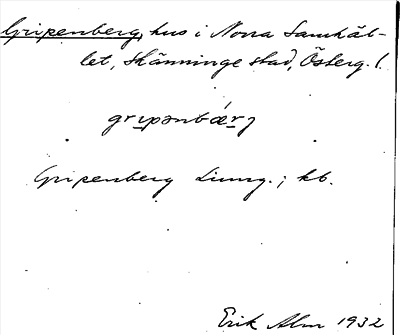 Gripenberg, hus i Norra Samhäl-
let, Skänninge stad, Österg. l.
gripənbærj
Gripenberg Ljung.; kb.
Erik Alm 1932